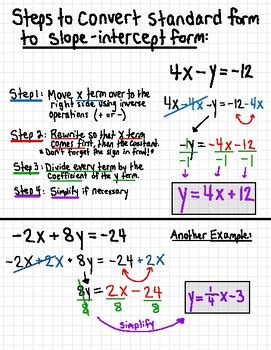 Steps to Convert Standard form
to slope-intercept form:
4x-y=-12
Step 1: Move x term over to the
right side using inverse
operations (+ or -)
4x-4x-y=-12-4x
Step 2: Rewrite so that x term
comes first, then the constant.
*Don't forget the sign in front!*
-y=-4x-12
-1 -1 -1
Step 3: Divide every term by the
coefficient of the y term.
Step 4: Simplify if necessary
y=4x+12
-2x+8y=-24
Another Example:
-2x+2x+8y=-24+2x
8y=2x-24
8 8 8
y=1/4x-3
simplify